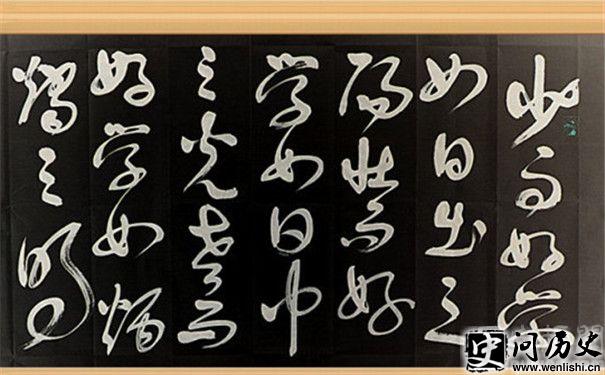 少而好学
如日出之
阳壮而好
学如日中
之光老而
好学如炳
烛之明
问历史
www.wenlishi.cn